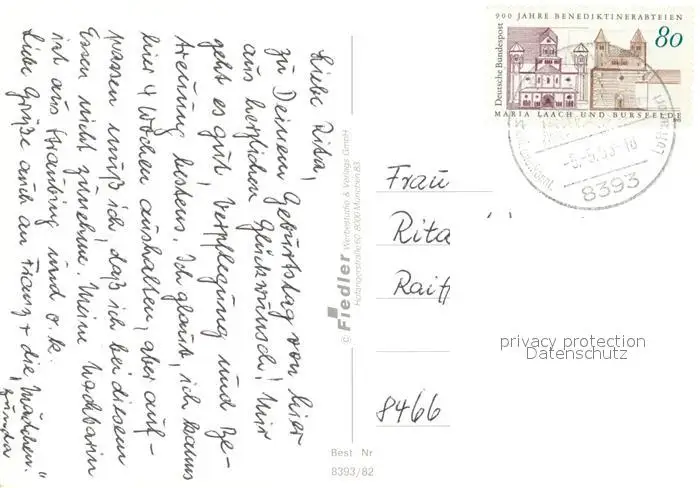 Liebe Rita,
zu Deinem Geburtstag von hier
aus herzlichen Glückwunsch! Mir
geht es gut, Verpflegung und Be-
treuung bestens. Ich glaub, ich kanns
hier 4 Wochen aushalten, aber auf-
passen muß ich, daß ich bei diesem
Essen nicht zunehme. Meine Nachbarin
ist aus Straubing und o.k.
Liebe Grüße auch an Franz + die „Mädchen."
© Fiedler Werbestudio & Verlags GmbH
8000 München 83
Best Nr
8393/82
900 JAHRE BENEDIKTINERABTEIEN
Deutsche Bundespost
80
MARIA LAACH UND BURSFELDE
8393
Frau
Rita
Raiff
8466
privacy protection
Datenschutz